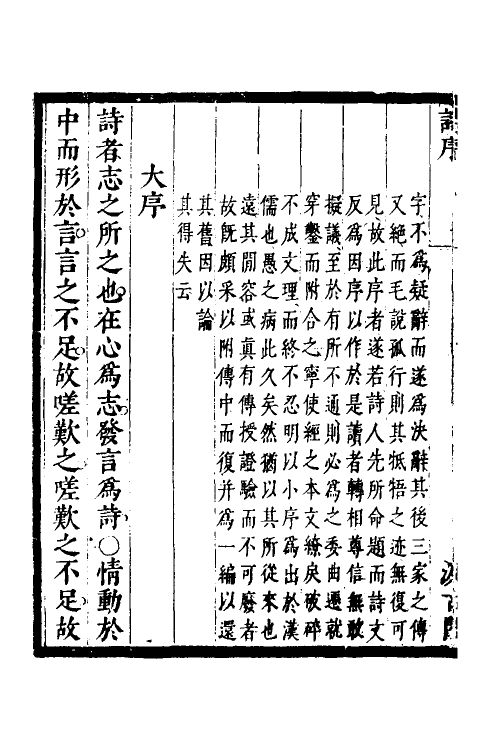 詩序
字不爲疑辭而遂爲決辭其後三家之傳
又絕而毛說孤行則其牴牾之迹無復可
見故此序者遂若詩人先所命題而詩文
反爲因序以作於是讀者轉相尊信無敢
擬議至於有所不通則必爲之委曲遷就
穿鑿而附合之寧使經之本文繚戾破碎
不成文理而終不忍明以小序爲出於漢
儒也愚之病此久矣然猶以其所從來也
遠其閒容或真有傳授證驗而不可廢者
故旣頗采以附傳中而復并爲一編以還
其舊因以論
其得失云
大序
詩者志之所之也在心爲志發言爲詩○情動於
中而形於言言之不足故嗟歎之嗟歎之不足故